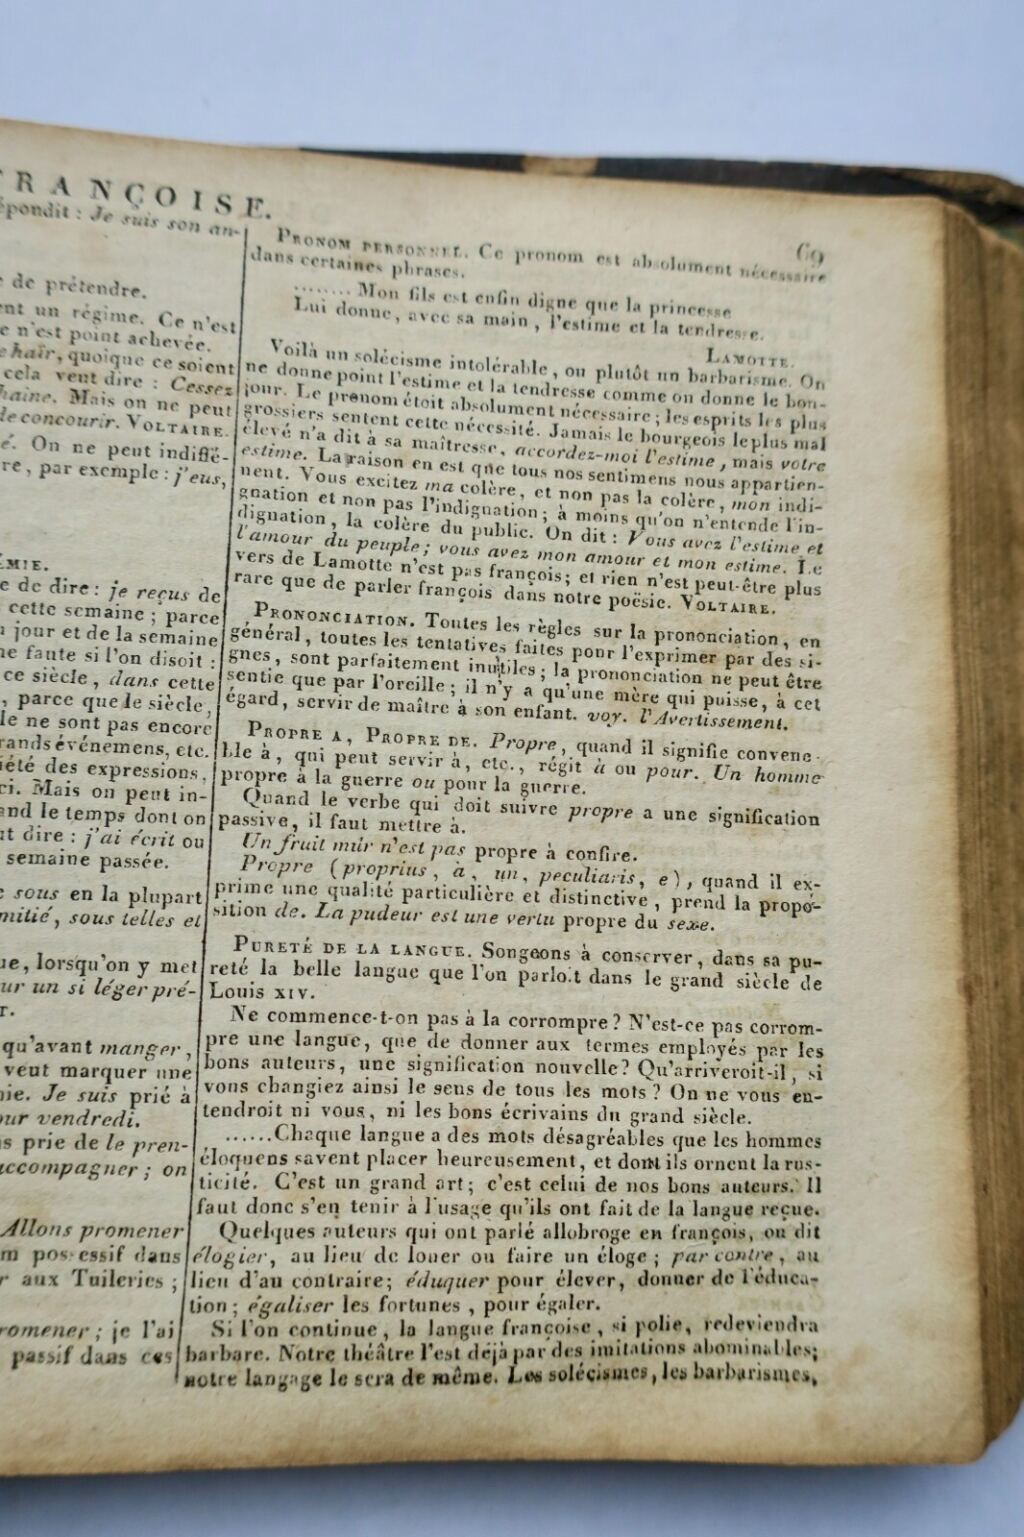 RANÇOISE.
69
épondit : Je suis son an-
de prétendre.
ent un régime. Ce n'est
e n'est point achevée.
haïr, quoique ce soient
cela veut dire : Cessez
haine. Mais on ne peut
de concourir. VOLTAIRE.
é. On ne peut indiffé-
re, par exemple : j'eus,
ÉMIE.
e de dire : je reçus de
cette semaine ; parce
jour et de la semaine
ne faute si l'on disoit :
ce siècle, dans cette
, parce que le siècle,
le ne sont pas encore
rands événemens, etc.
iété des expressions,
ci. Mais on peut in-
and le temps dont on
t dire : j'ai écrit ou
semaine passée.
sous en la plupart
mitié, sous telles et
ue, lorsqu'on y met
ur un si léger pré-
r.
qu'avant manger,
veut marquer une
ie. Je suis prié à
our vendredi.
s prie de le pren-
accompagner ; on
Allons promener
m possessif dans
r aux Tuileries ;
romener ; je l'ai
passif dans ces
PRONOM PERSONNEL. Ce pronom est absolument nécessaire
dans certaines phrases.
........ Mon fils est enfin digne que la princesse
Lui donne, avec sa main, l'estime et la tendresse.
LAMOTTE.
Voilà un solécisme intolérable, ou plutôt un barbarisme. On
ne donne point l'estime et la tendresse comme on donne le bon-
jour. Le pronom étoit absolument nécessaire ; les esprits les plus
grossiers sentent cette nécessité. Jamais le bourgeois le plus mal
élevé n'a dit à sa maîtresse, accordez-moi l'estime, mais votre
estime. La raison en est que tous nos sentimens nous appartien-
nent. Vous excitez ma colère, et non pas la colère, mon indi-
gnation et non pas l'indignation ; à moins qu'on n'entende l'in-
dignation, la colère du public. On dit : Vous avez l'estime et
l'amour du peuple ; vous avez mon amour et mon estime. Le
vers de Lamotte n'est pas françois ; et rien n'est peut-être plus
rare que de parler françois dans notre poësie. VOLTAIRE.
PRONONCIATION. Toutes les règles sur la prononciation, en
général, toutes les tentatives faites pour l'exprimer par des si-
gnes, sont parfaitement inutiles ; la prononciation ne peut être
sentie que par l'oreille ; il n'y a qu'une mère qui puisse, à cet
égard, servir de maître à son enfant. voy. l'Avertissement.
PROPRE A, PROPRE DE. Propre, quand il signifie convena-
ble à, qui peut servir à, etc., régit à ou pour. Un homme
propre à la guerre ou pour la guerre.
Quand le verbe qui doit suivre propre a une signification
passive, il faut mettre à.
Un fruit mûr n'est pas propre à confire.
Propre (proprius, a, un, peculiaris, e), quand il ex-
prime une qualité particulière et distinctive, prend la propo-
sition de. La pudeur est une vertu propre du sexe.
PURETÉ DE LA LANGUE. Songeons à conserver, dans sa pu-
reté la belle langue que l'on parloit dans le grand siècle de
Louis XIV.
Ne commence-t-on pas à la corrompre ? N'est-ce pas corrom-
pre une langue, que de donner aux termes employés par les
bons auteurs, une signification nouvelle ? Qu'arriveroit-il, si
vous changiez ainsi le sens de tous les mots ? On ne vous en-
tendroit ni vous, ni les bons écrivains du grand siècle.
......Chaque langue a des mots désagréables que les hommes
éloquens savent placer heureusement, et dont ils ornent la rus-
ticité. C'est un grand art ; c'est celui de nos bons auteurs. Il
faut donc s'en tenir à l'usage qu'ils ont fait de la langue reçue.
Quelques auteurs qui ont parlé allobroge en françois, ou dit
élogier, au lieu de louer ou faire un éloge ; par contre, au
lieu d'au contraire ; éduquer pour élever, donner de l'éduca-
tion ; égaliser les fortunes, pour égaler.
Si l'on continue, la langue françoise, si polie, redeviendra
barbare. Notre théâtre l'est déjà par des imitations abominables ;
notre langage le sera de même. Les solécismes, les barbarismes,